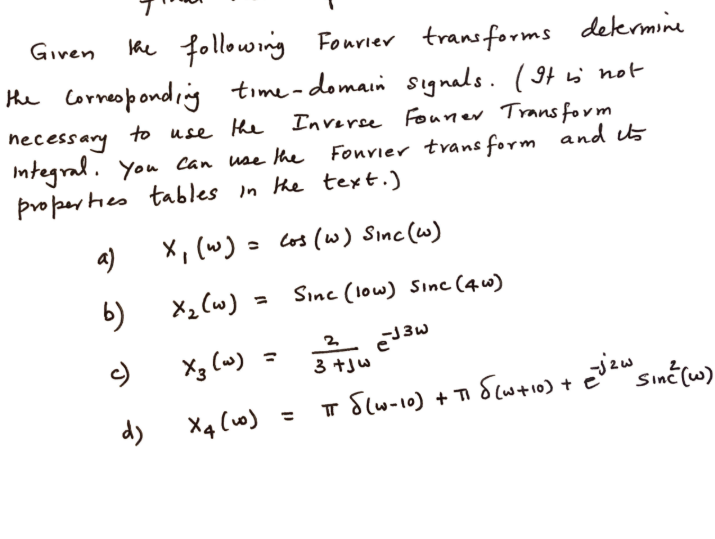 Given the following Fourier transforms determine
the corresponding time-domain signals. (It is not
necessary to use the Inverse Fourier Transform
Integral. You can use the Fourier transform and its
properties tables in the text.)
a) X₁(ω) = cos(ω) Sinc(ω)
b) X₂(ω) = Sinc(10ω) Sinc(4ω)
c) X₃(ω) = 2/(3+Jω) e^(-J3ω)
d) X₄(ω) = π δ(ω-10) + π δ(ω+10) + e^(-j2ω) Sinc²(ω)